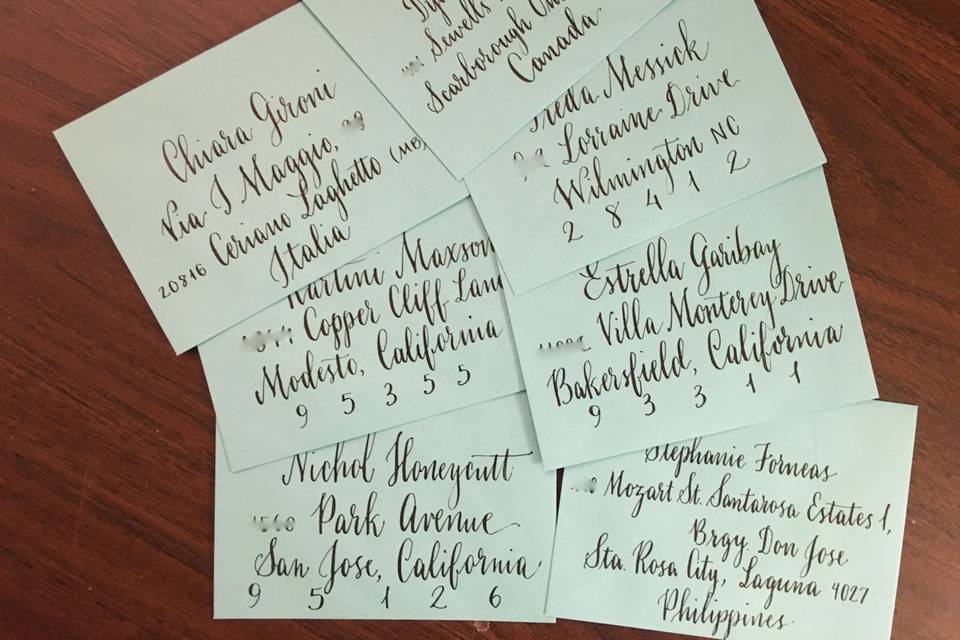 Sewells
Scarborough
Canada
Chiara Gironi
Via I Maggio,
20816 Ceriano Laghetto (MB)
Italia
Messick
Lorraine Drive
Wilmington NC
2 8 4 1 2
Maxson
Copper Cliff Lane
Modesto, California
9 5 3 5 5
Estrella Garibay
Villa Monterey Drive
Bakersfield, California
9 3 3 1 1
Nichol Honeycutt
Park Avenue
San Jose, California
9 5 1 2 6
Stephanie Forneas
Mozart St. Santarosa Estates 1,
Brgy. Don Jose
Sta. Rosa City, Laguna 4027
Philippines